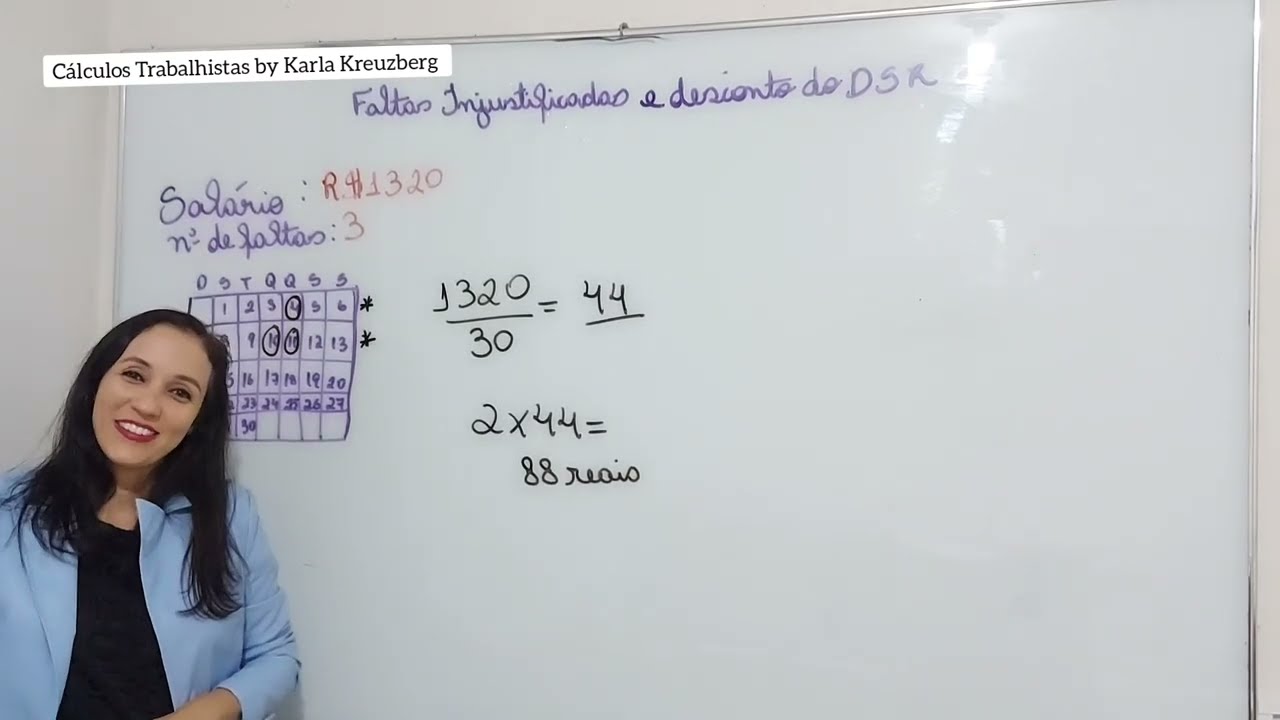 Cálculos Trabalhistas by Karla Kreuzberg
Faltas Injustificadas e desconto do DSR
Salário : R$1320
nº de faltas: 3
D S T Q Q S S
1 2 3 4 5 6 *
9 10 11 12 13 *
16 17 18 19 20
23 24 25 26 27
30
1320 = 44
30
2x44=
88 reais